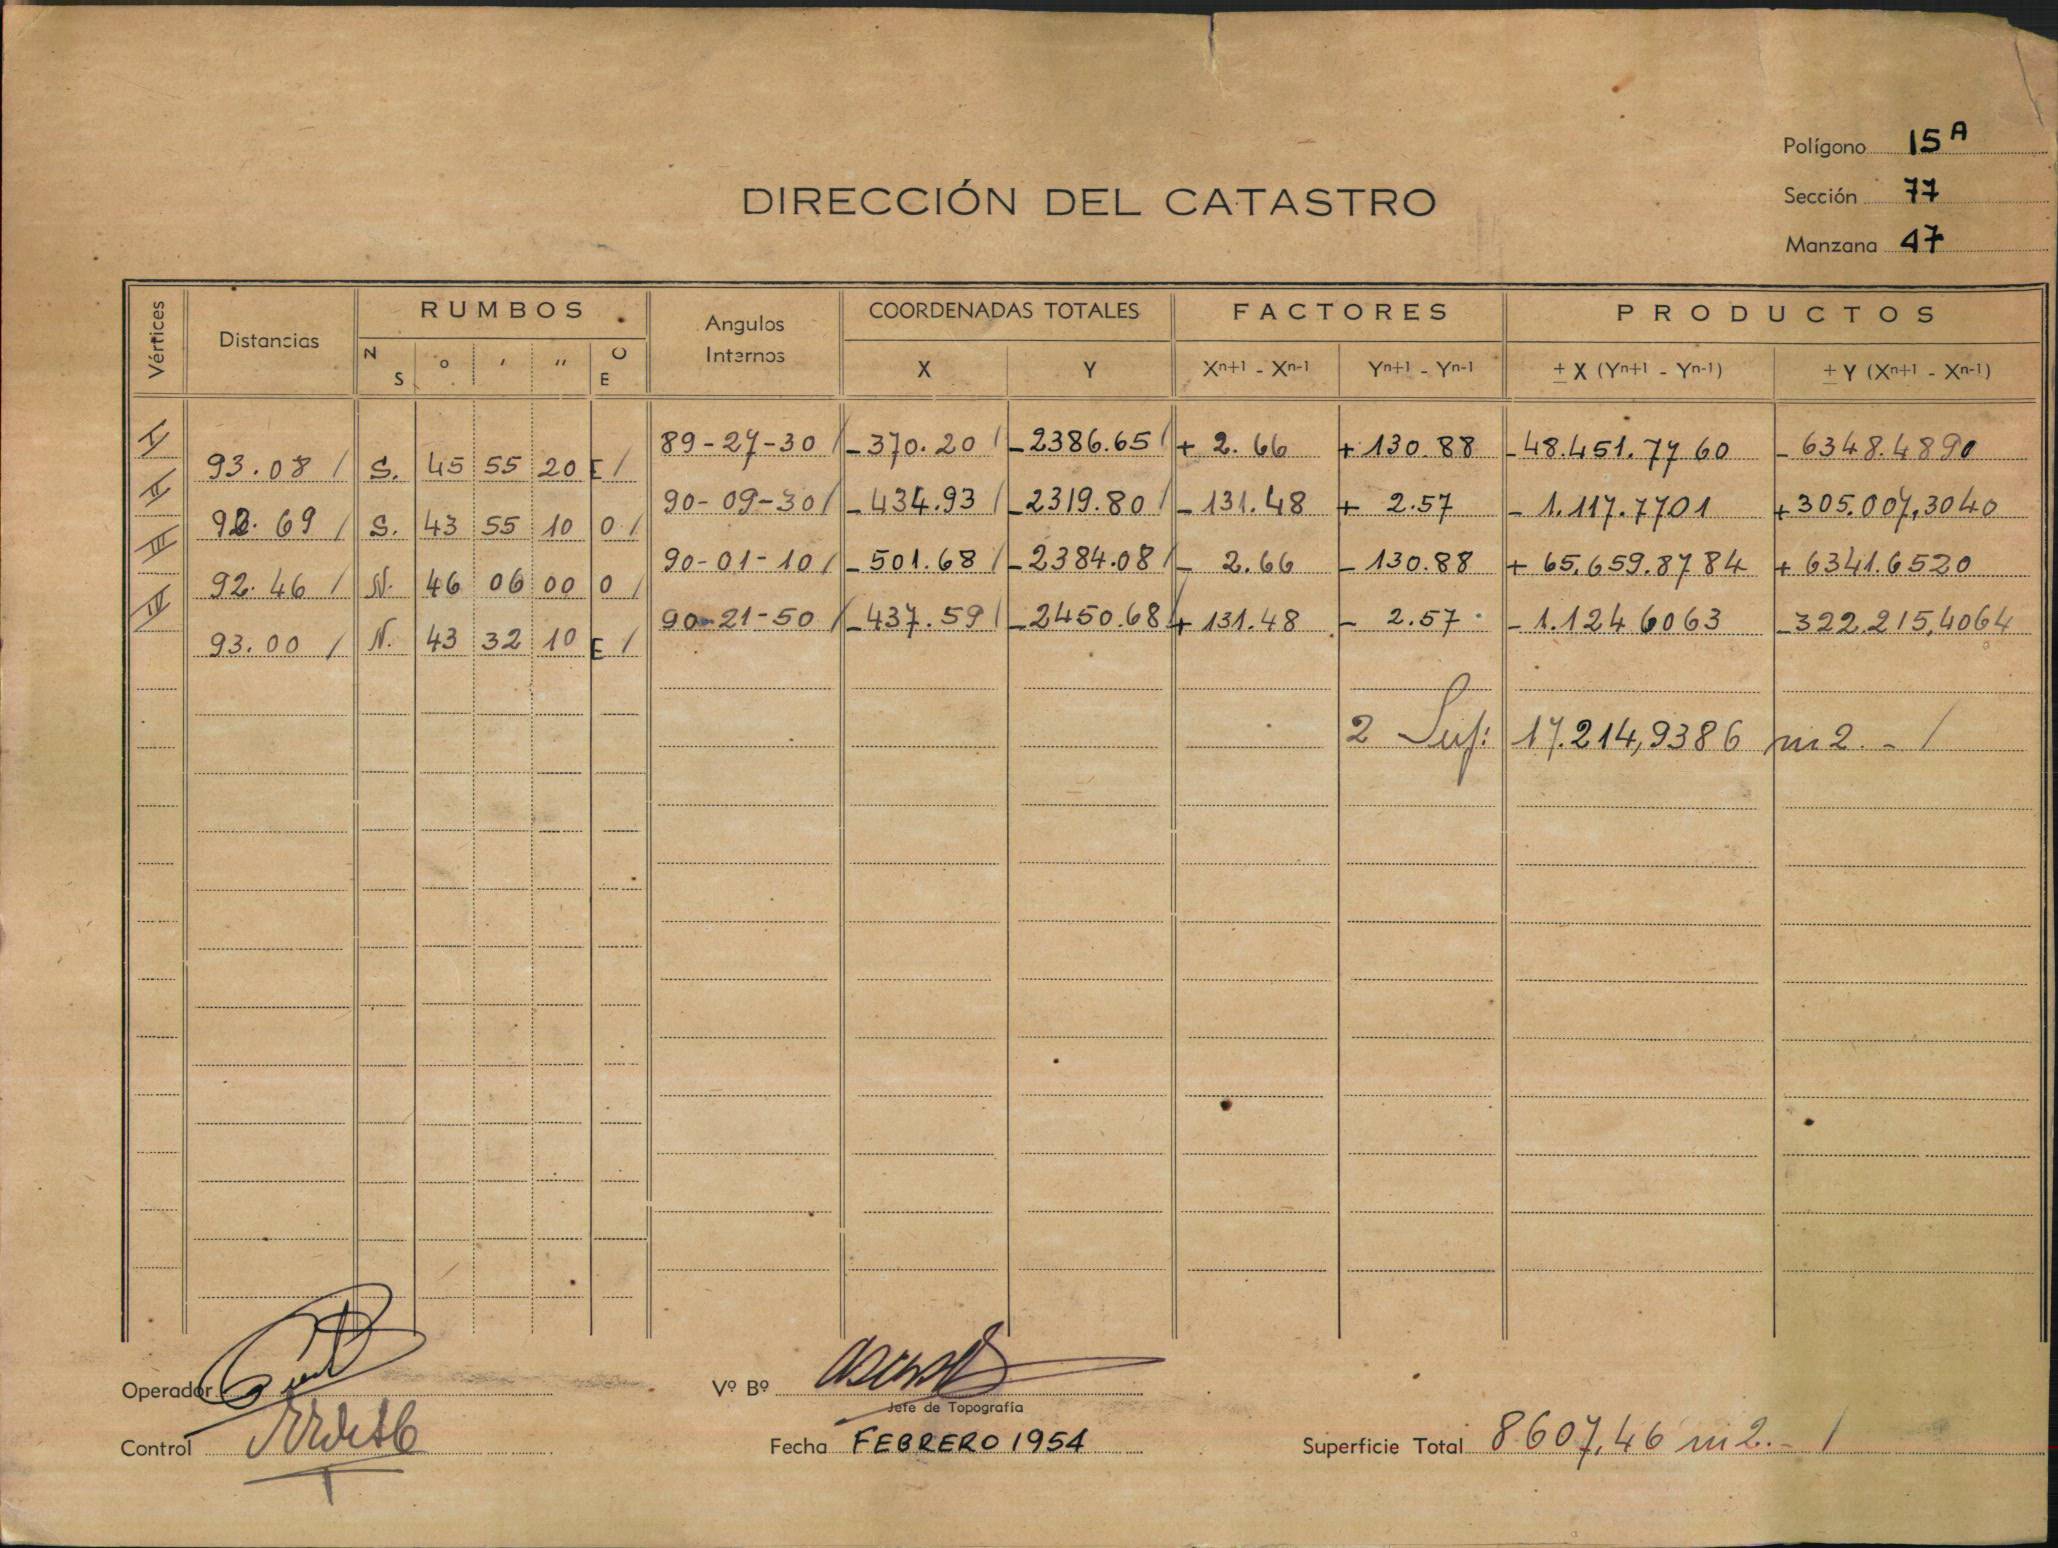 Polígono 15 A
Sección 77
Manzana 47
DIRECCIÓN DEL CATASTRO
Vértices Distancias RUMBOS Angulos Internos COORDENADAS TOTALES FACTORES PRODUCTOS
N S ° ' '' O E X Y Xn+1 - Xn-1 Yn+1 - Yn-1 ± X (Yn+1 - Yn-1) ± Y (Xn+1 - Xn-1)
I 89-27-30 / -370.20 / -2386.65 / + 2.66 + 130.88 -48.451.7760 - 6348.4890
93.08 / S. 45 55 20 E /
II 90-09-30 / -434.93 / -2319.80 / - 131.48 + 2.57 - 1.117.7701 +305.007,3040
92.69 / S. 43 55 10 O /
III 90-01-10 / -501.68 / -2384.08 / - 2.66 - 130.88 + 65.659.8784 + 6341.6520
92.46 / N. 46 06 00 O /
IV 90-21-50 / -437.59 / -2450.68 / + 131.48 - 2.57 - 1.124.6063 -322.215,4064
93.00 / N. 43 32 10 E /
2 Sup: 17.214,9386 m2. - /
Operador
Vº Bº
Jefe de Topografía
Control
Fecha FEBRERO 1954
Superficie Total 8607,46 m2.- /